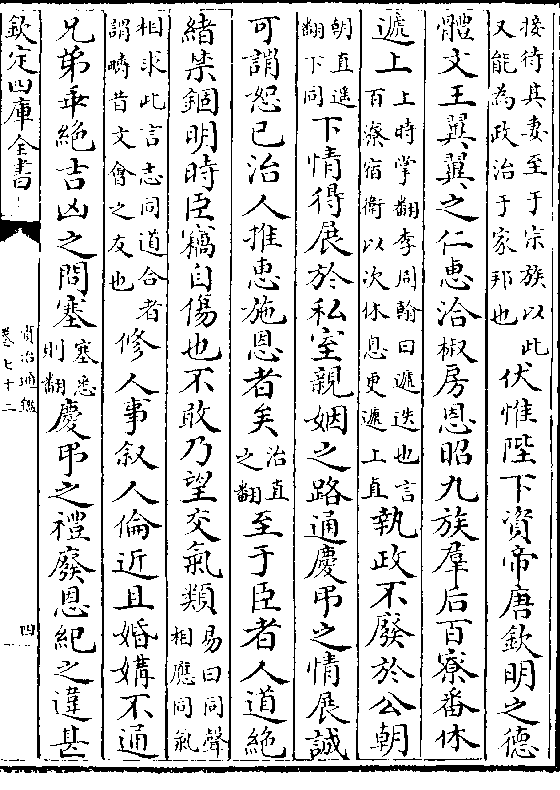 接待其妻至于宗族以此
又能為政治于家邦也
伏惟陛下資帝唐欽明之德
體文王翼翼之仁惠洽椒房恩昭九族羣后百寮番休
遞上
上時掌翻李周翰曰遞迭也言
百寮宿衞以次休息更遞上直
執政不廢於公朝
朝直遥
翻下同
下情得展於私室親姻之路通慶弔之情展誠
可謂恕己治人推惠施恩者矣
治直
之翻
至于臣者人道絶
緒禁錮明時臣竊自傷也不敢乃望交氣類
易曰同聲
相應同氣
相求此言志同道合者
謂疇昔文會之友也
修人事叙人倫近且婚媾不通
兄弟乖絶吉凶之問塞
塞悉
則翻
慶弔之禮廢恩紀之違甚
欽定四庫全書
資治通鑑
卷七十二
四